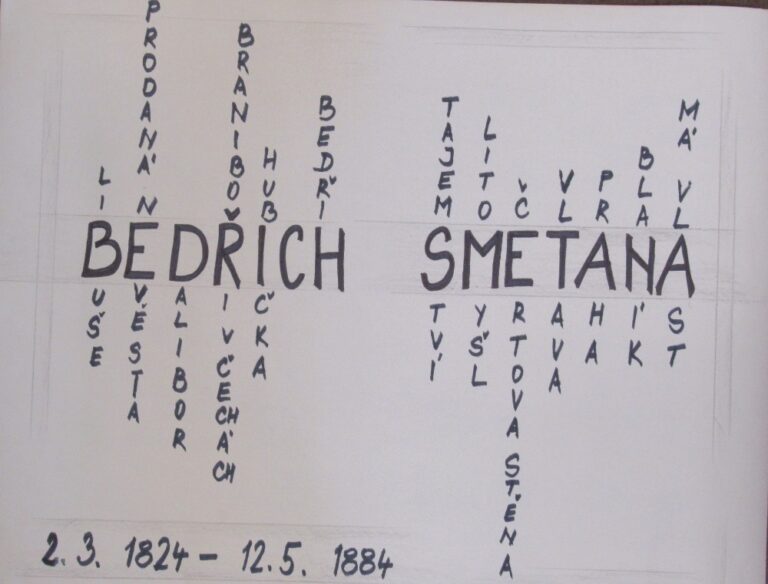 BEDŘICH SMETANA
LIBUŠE
PRODANÁ NEVĚSTA
DALIBOR
BRANIBOŘI V ČECHÁCH
HUBIČKA
BEDŘICH
TAJEMSTVÍ
LITOMYŠL
ČERTOVA STĚNA
VLTAVA
PRAHA
BLANÍK
MÁ VLAST
2. 3. 1824 – 12. 5. 1884